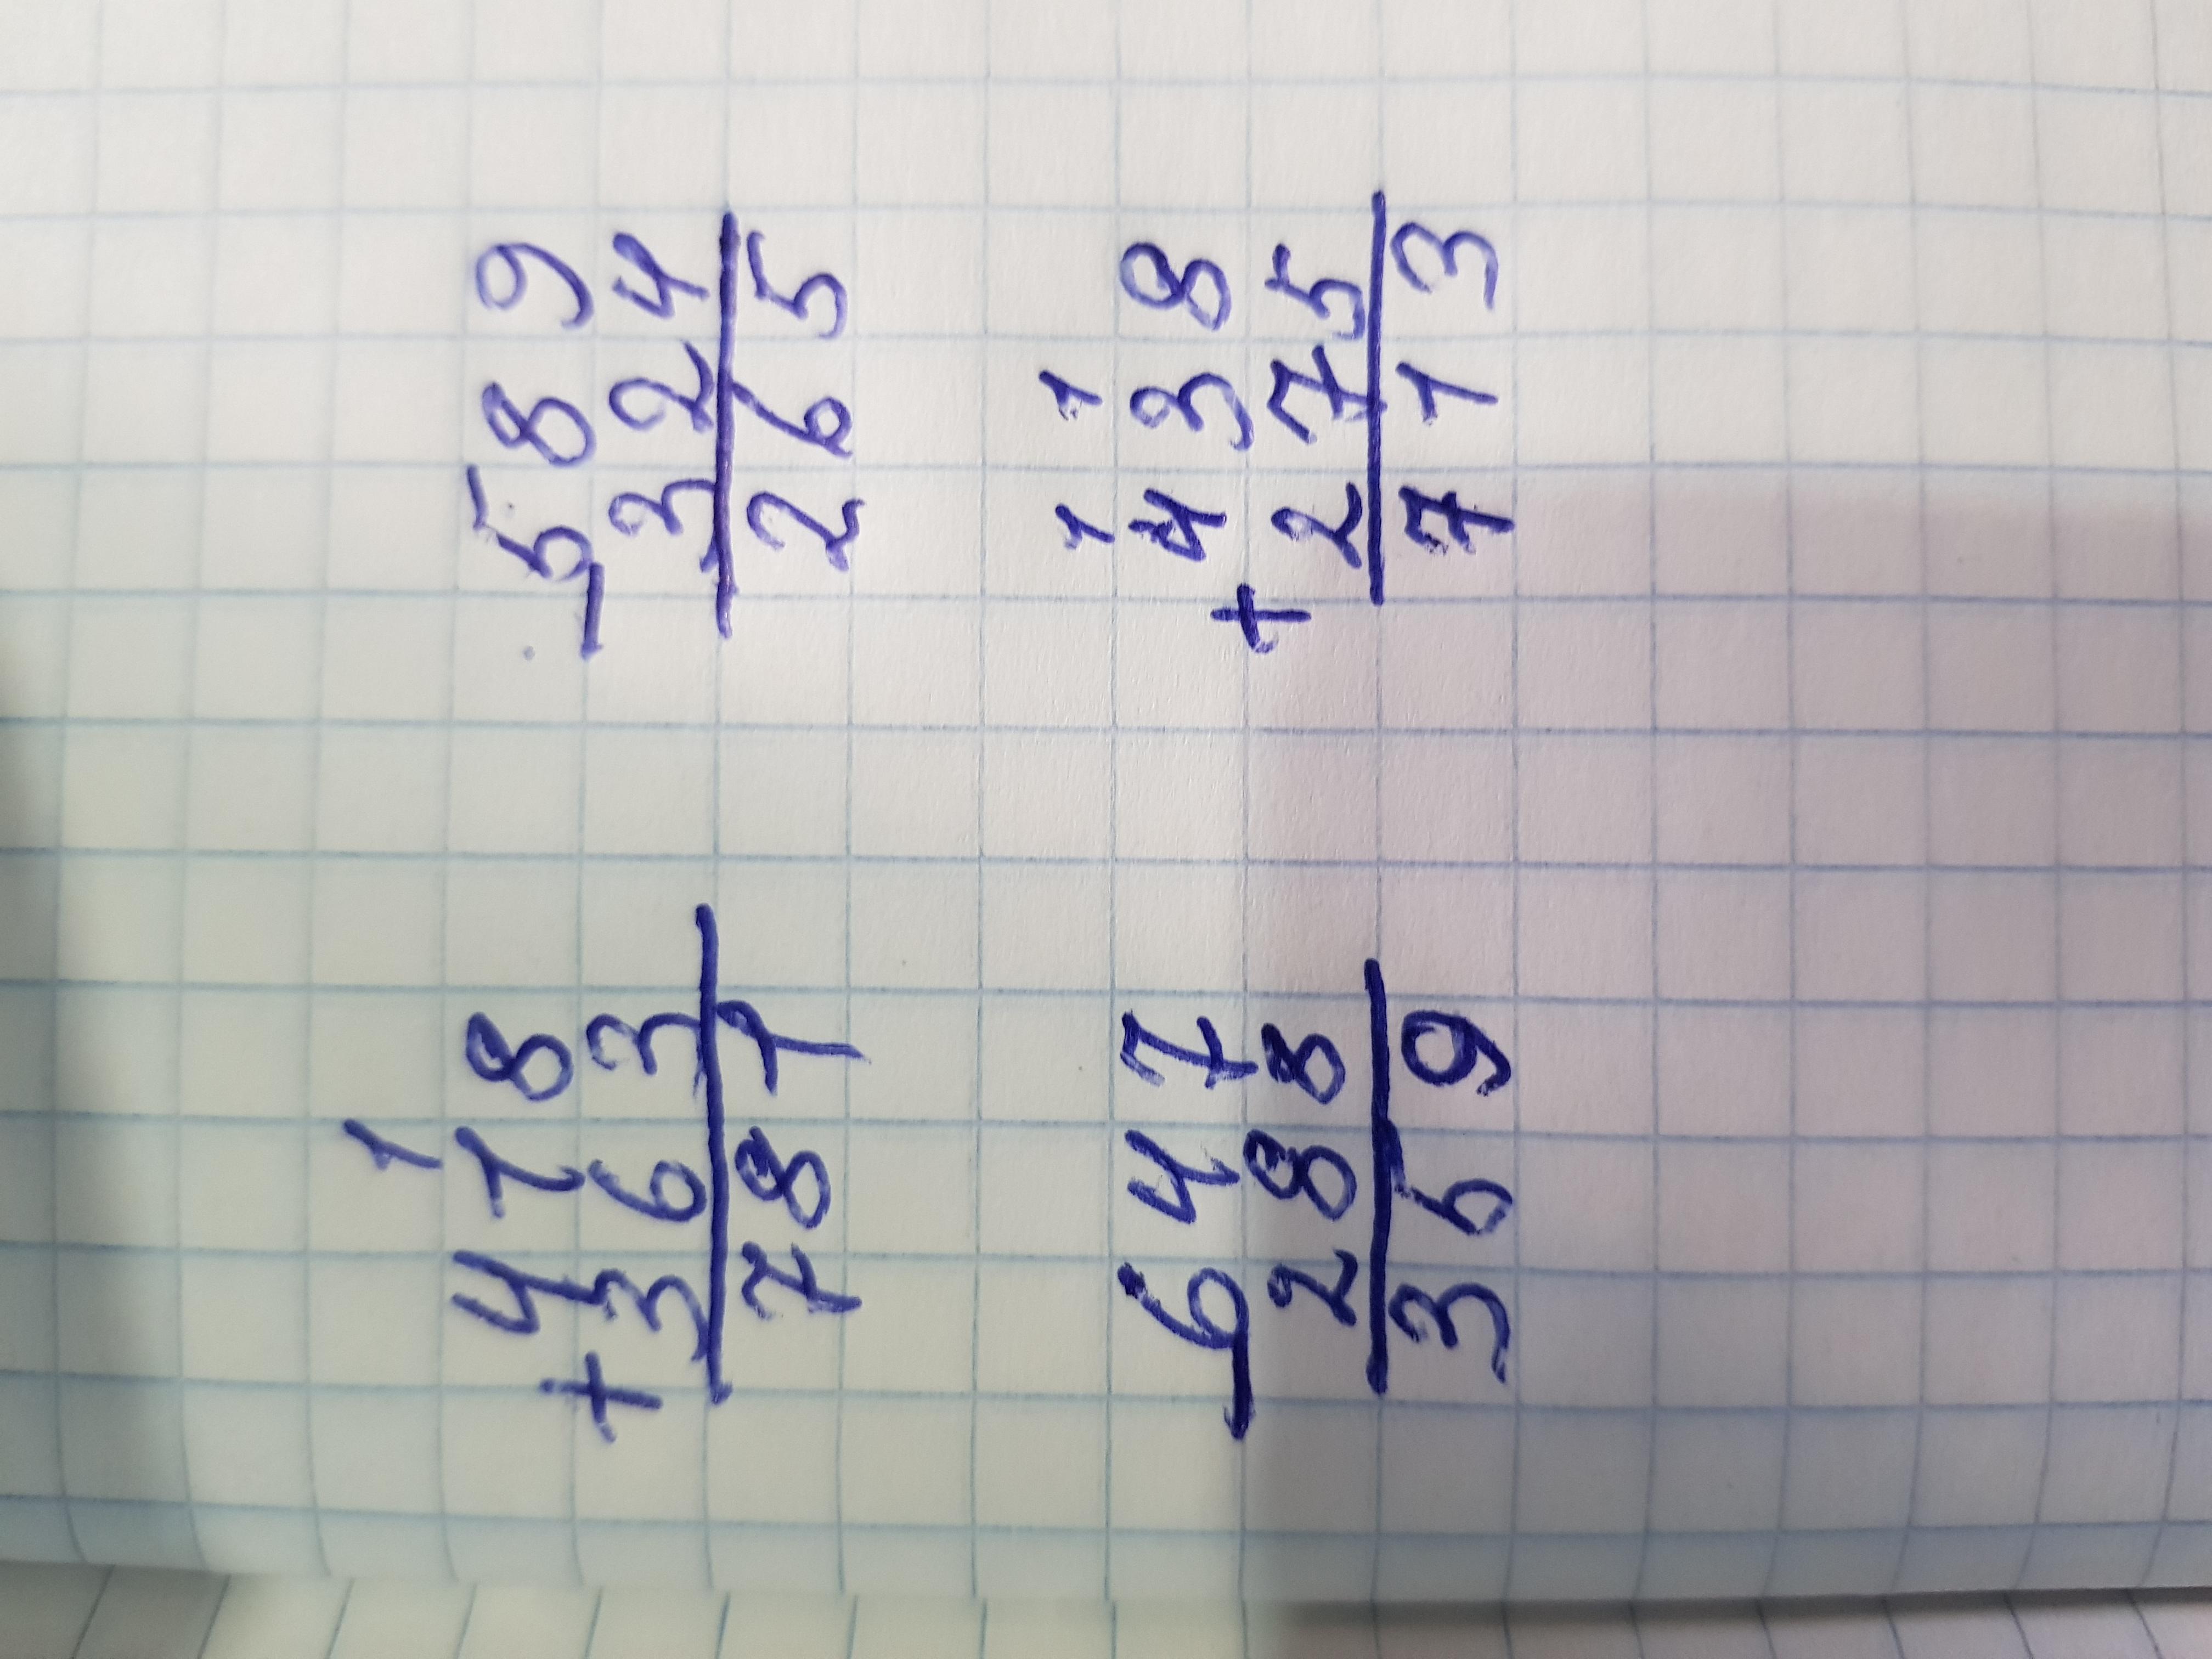 1
418 589
+ 363 - 324
781 265
1 1
647 438
- 288 + 275
359 713